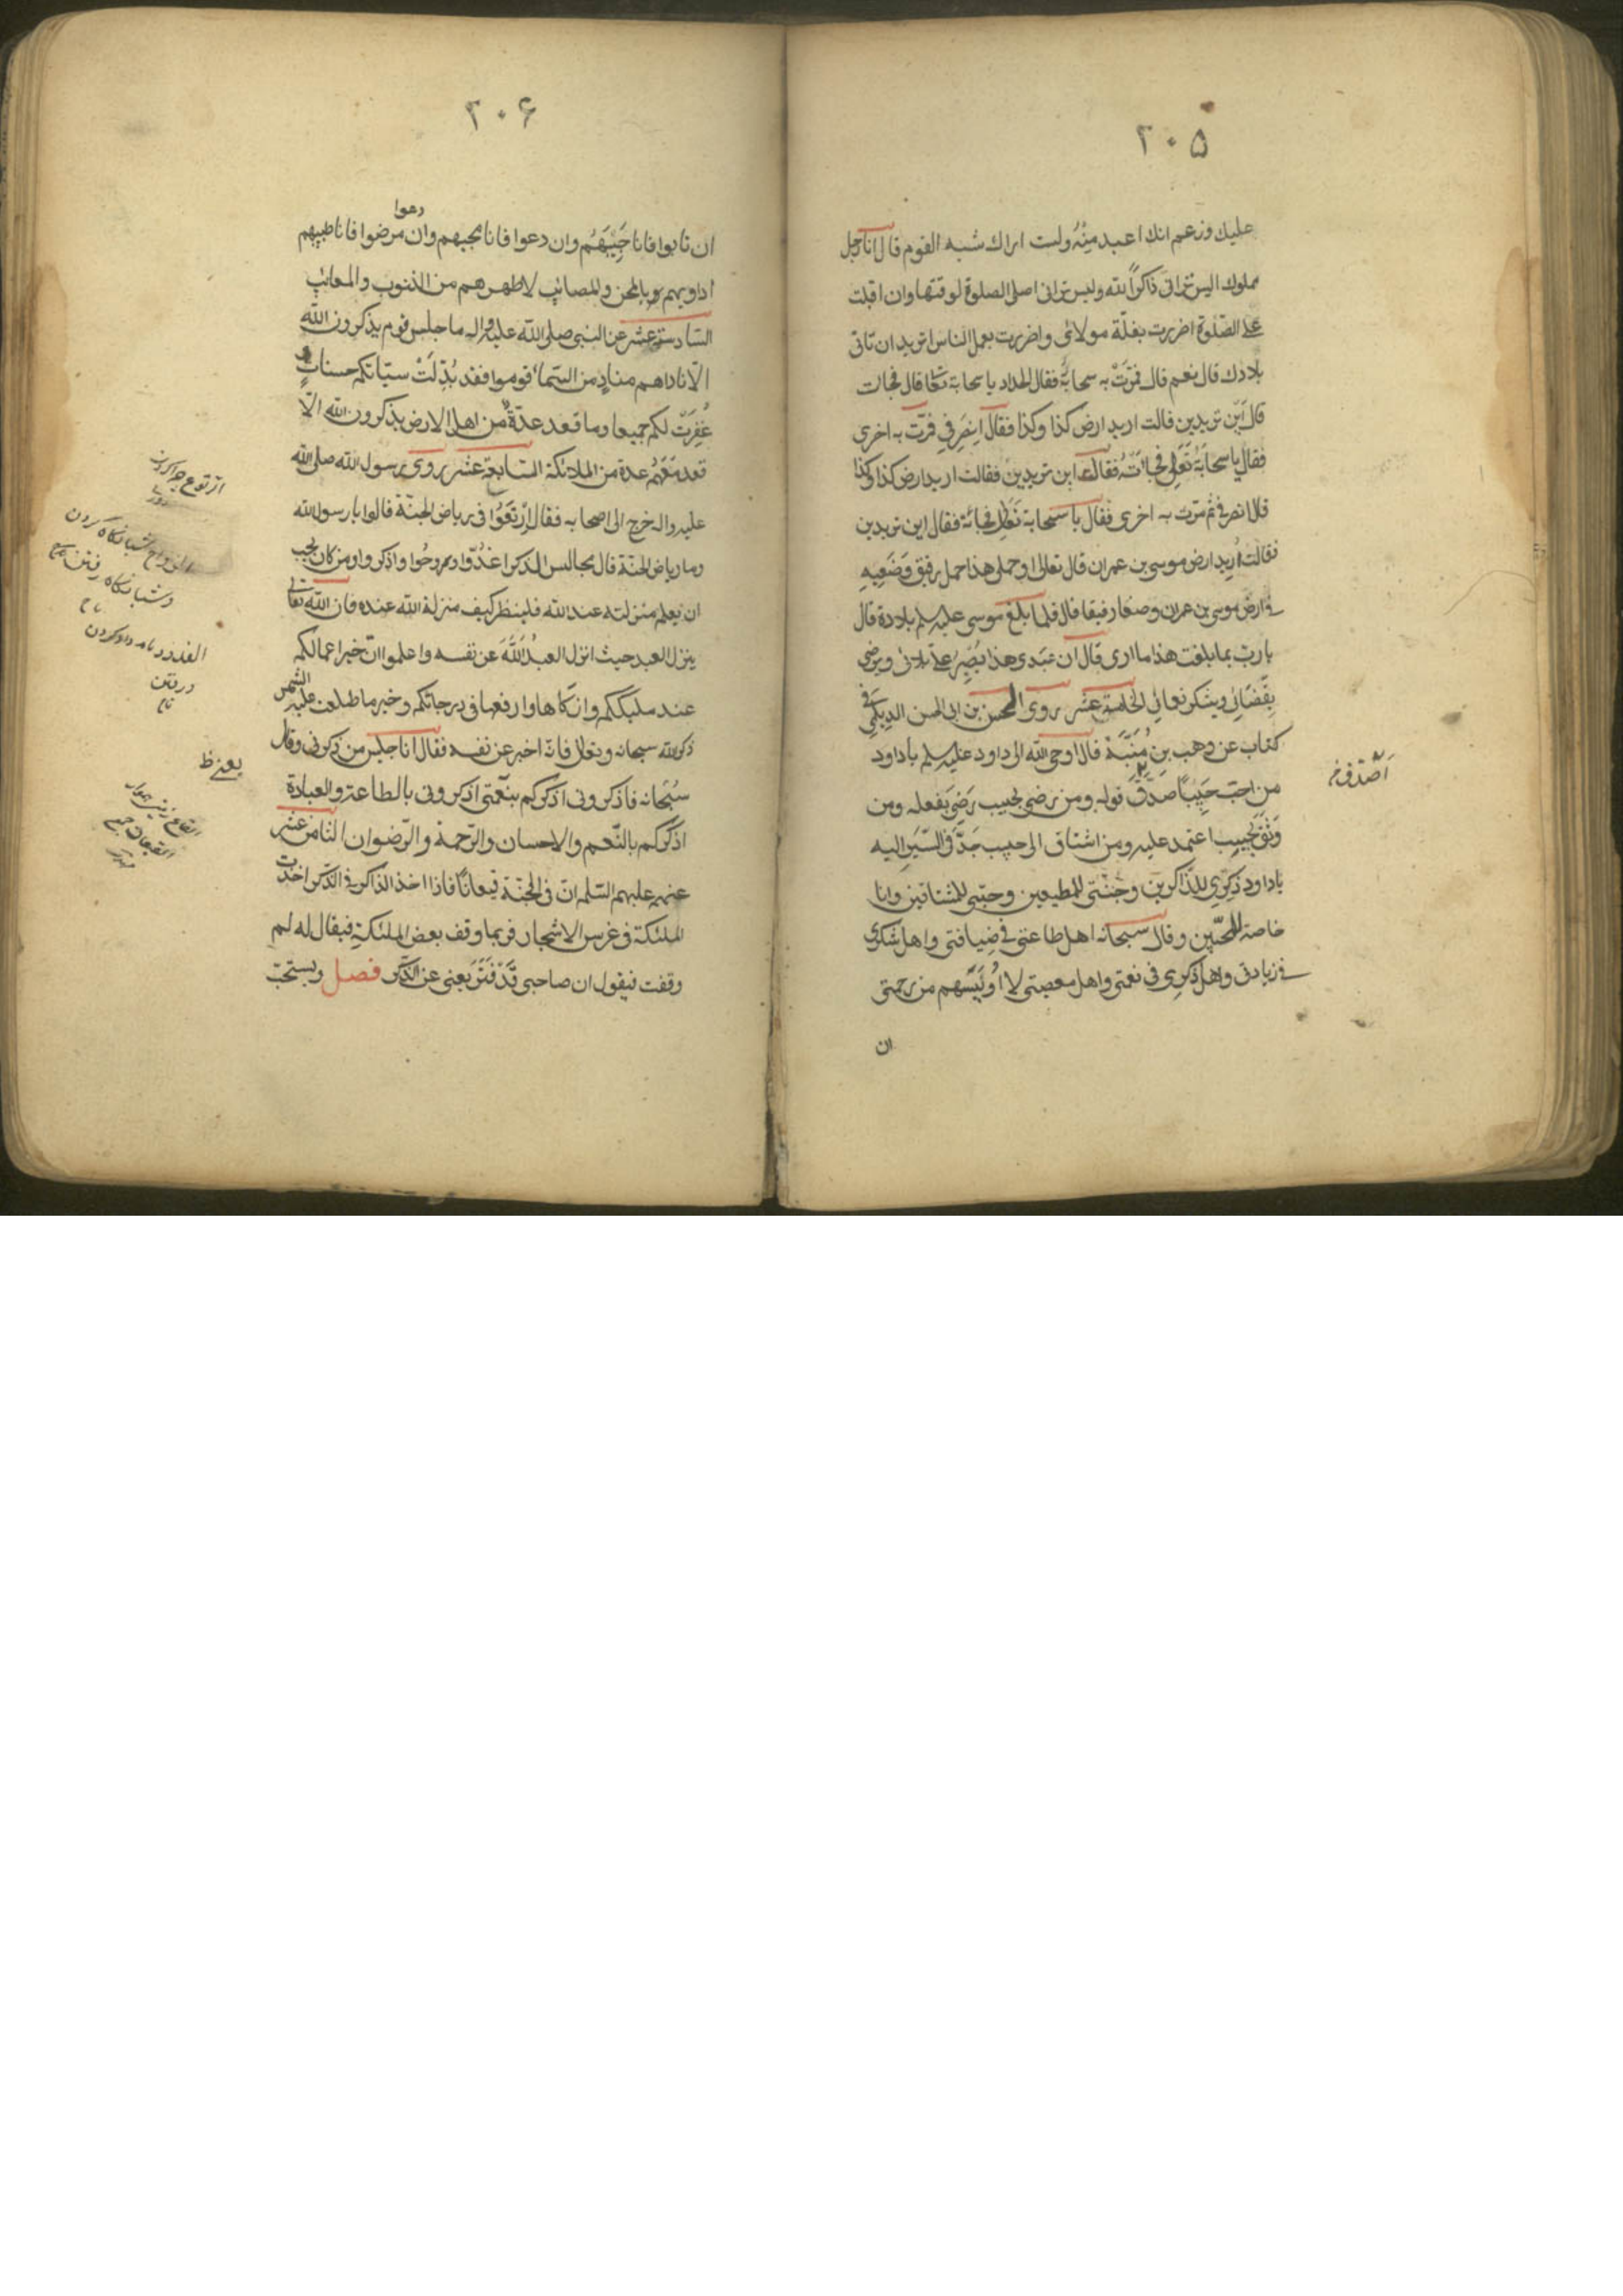 ٢٠٥
عليك وزعم انك اعبد مِنْهُ ولست اراك شبه القوم قال انا رجل
مملوك اليس تراني ذاكراً لله وليس تراني اصلي الصلوة لوقتها وان اقبلت
على الصّلوة اضررت بغلّة مولائي واضررت بعمل الناس اتريد ان تاتي
بلادك قال نعم قال فمَرّتْ به سحابةٌ فقال الحداد يا سحابة تعالي قال فجاءت
قال اَيْن تريدين قالت اريد ارض كذا وكذا فقال اِنصَرِفي فمرّت به اخرى
فقال يا سحابةُ تَعٰالي فجائَتْهُ فقال اين تريدين فقالت اريد ارض كذا وكذا
قال انصرفي ثم مرّت به اخرى فقال يا سحابة تعالي فجائته فقال اين تريدين
فقالت اُريد ارض موسى بن عمران قال تعالي احملي هذا حمل رفيق وَضَعِيهِ
في ارض موسى بن عمران وضعا رفيقا قال فلما بلغ موسى عليه سلم بلاده قال
يا ربّ بما بلغت هذا ما ارى قال ان عَبدي هذا يَصْبِرُ على بلائي ويرضى
بِقَضٰائي ويشكر نعمائي الخامسة عشر روى الحسن بن ابي الحسن الديلمي في
كتابه عن وهب بن مُنَبَّهْ قال اوحى الله الى داود عليه سلم يا داود
من احبّ حَبِيْبًا صَدَّقَ قوله ومن رضى بحبيب رَضِيَ بفعله ومن
وَثَقَ بحبيب اعتمد عليه ومن اشتاق الى حبيب جَدَّ في السَّيرِ اليه
يا داود ذِكْرِي للذّاكرين وجَنّتي للمطيعين وحبّي للمشتاقين وانا
خاصة للمحبّين وقال سبحانه اهل طاعتي في ضيافتي واهل شكري
في زيادتي واهل ذكرِي في نعمتي واهل معصيتي لا اُوْيِسُهم من رحمتي
ان
٢٠٦
دعوا
ان تابوا فانا حَبِيْبُهُم وان دعوا فانا مجيبهم وان مرضوا فانا طبيبهم
اداويهم بالمحن والمصائب لاطهرهم من الذنوب والمعائب
السّادسة عشر عن النبي صلى الله عليه واله ما جلس قوم يذكرون الله
الّا ناداهم منادٍ من السّماء قوموا فقد بُدِّلَتْ سيّاتكم حسناتٍ
غُفِرَتْ لكم جميعا وما قعد عدّةٌ من اهل الارض يذكرون الله الّا
قعد مَعَهُم عدة من الملائكة السّابعة عشر روى رسول الله صلى الله
عليه واله خرج الى اصحابه فقال اِرْتَعَوُا في رياض الجنّة قالوا يا رسول الله
وما رياض الجنة قال مجالس الذكر اغدُوّا وروحُوا واذكروا ومن كان يحب
ان يعلم منزلته عند الله فلينظر كيف منزلة الله عنده فان الله تعالى
ينزل العبد حيث انزل العبدُ اللّٰهَ عن نفسه واعلموا انّ خير اعمالكم
عند مليككم وازكاها وارفعها في درجاتكم وخير ما طلعت عليه الشمس
ذكر الله سبحانه وتعالى فانّه اخبر عن نفسه فقال انا جليس من ذكرني وقال
سُبْحانه فاذكروني اذكركم بنعمَتي اذكروني بالطاعة والعبادة
اذكركم بالنّعم والاحسان والرّحمة والرّضوان الثامن عشر
عنهم عليهم السّلم انّ في الجنّة قيعاناً فاذا اخذ الذاكر في الذّكر اخذت
الملئكة في غرس الاشجار فربما وقف بعض الملئكةِ فيقال له لم
وقفت فيقول ان صاحبي قَدْ فَتَرَ يعني عن الذّكر فصل ويستحبّ